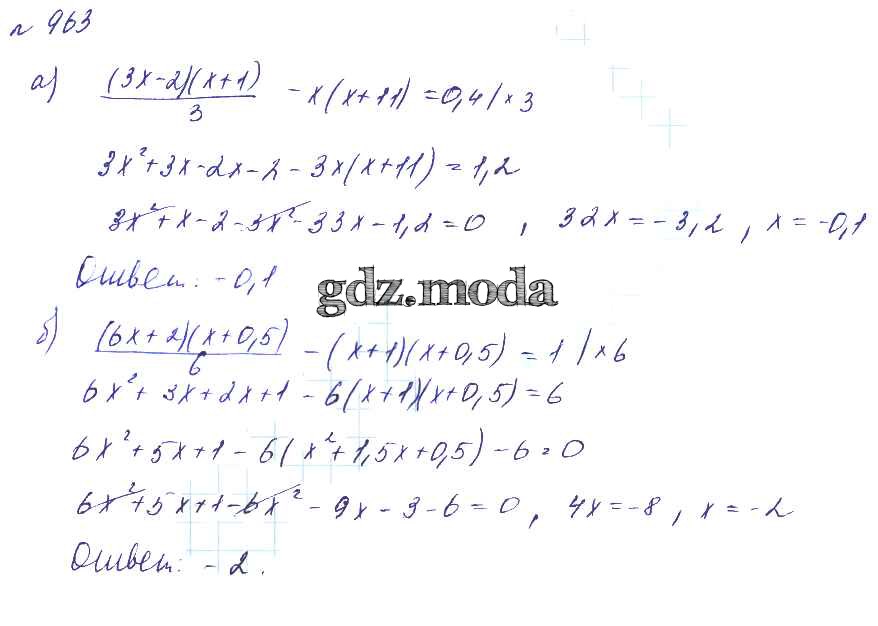 № 963
а) (3x-2)(x+1)/3 - x(x+11) = 0,4 / ×3
3x² + 3x - 2x - 2 - 3x(x+11) = 1,2
3x² + x - 2 - 3x² - 33x - 1,2 = 0 , 32x = -3,2 , x = -0,1
Ответ: -0,1
gdz.moda
б) (6x+2)(x+0,5)/6 - (x+1)(x+0,5) = 1 / ×6
6x² + 3x + 2x + 1 - 6(x+1)(x+0,5) = 6
6x² + 5x + 1 - 6(x² + 1,5x + 0,5) - 6 = 0
6x² + 5x + 1 - 6x² - 9x - 3 - 6 = 0 , 4x = -8 , x = -2
Ответ: -2.